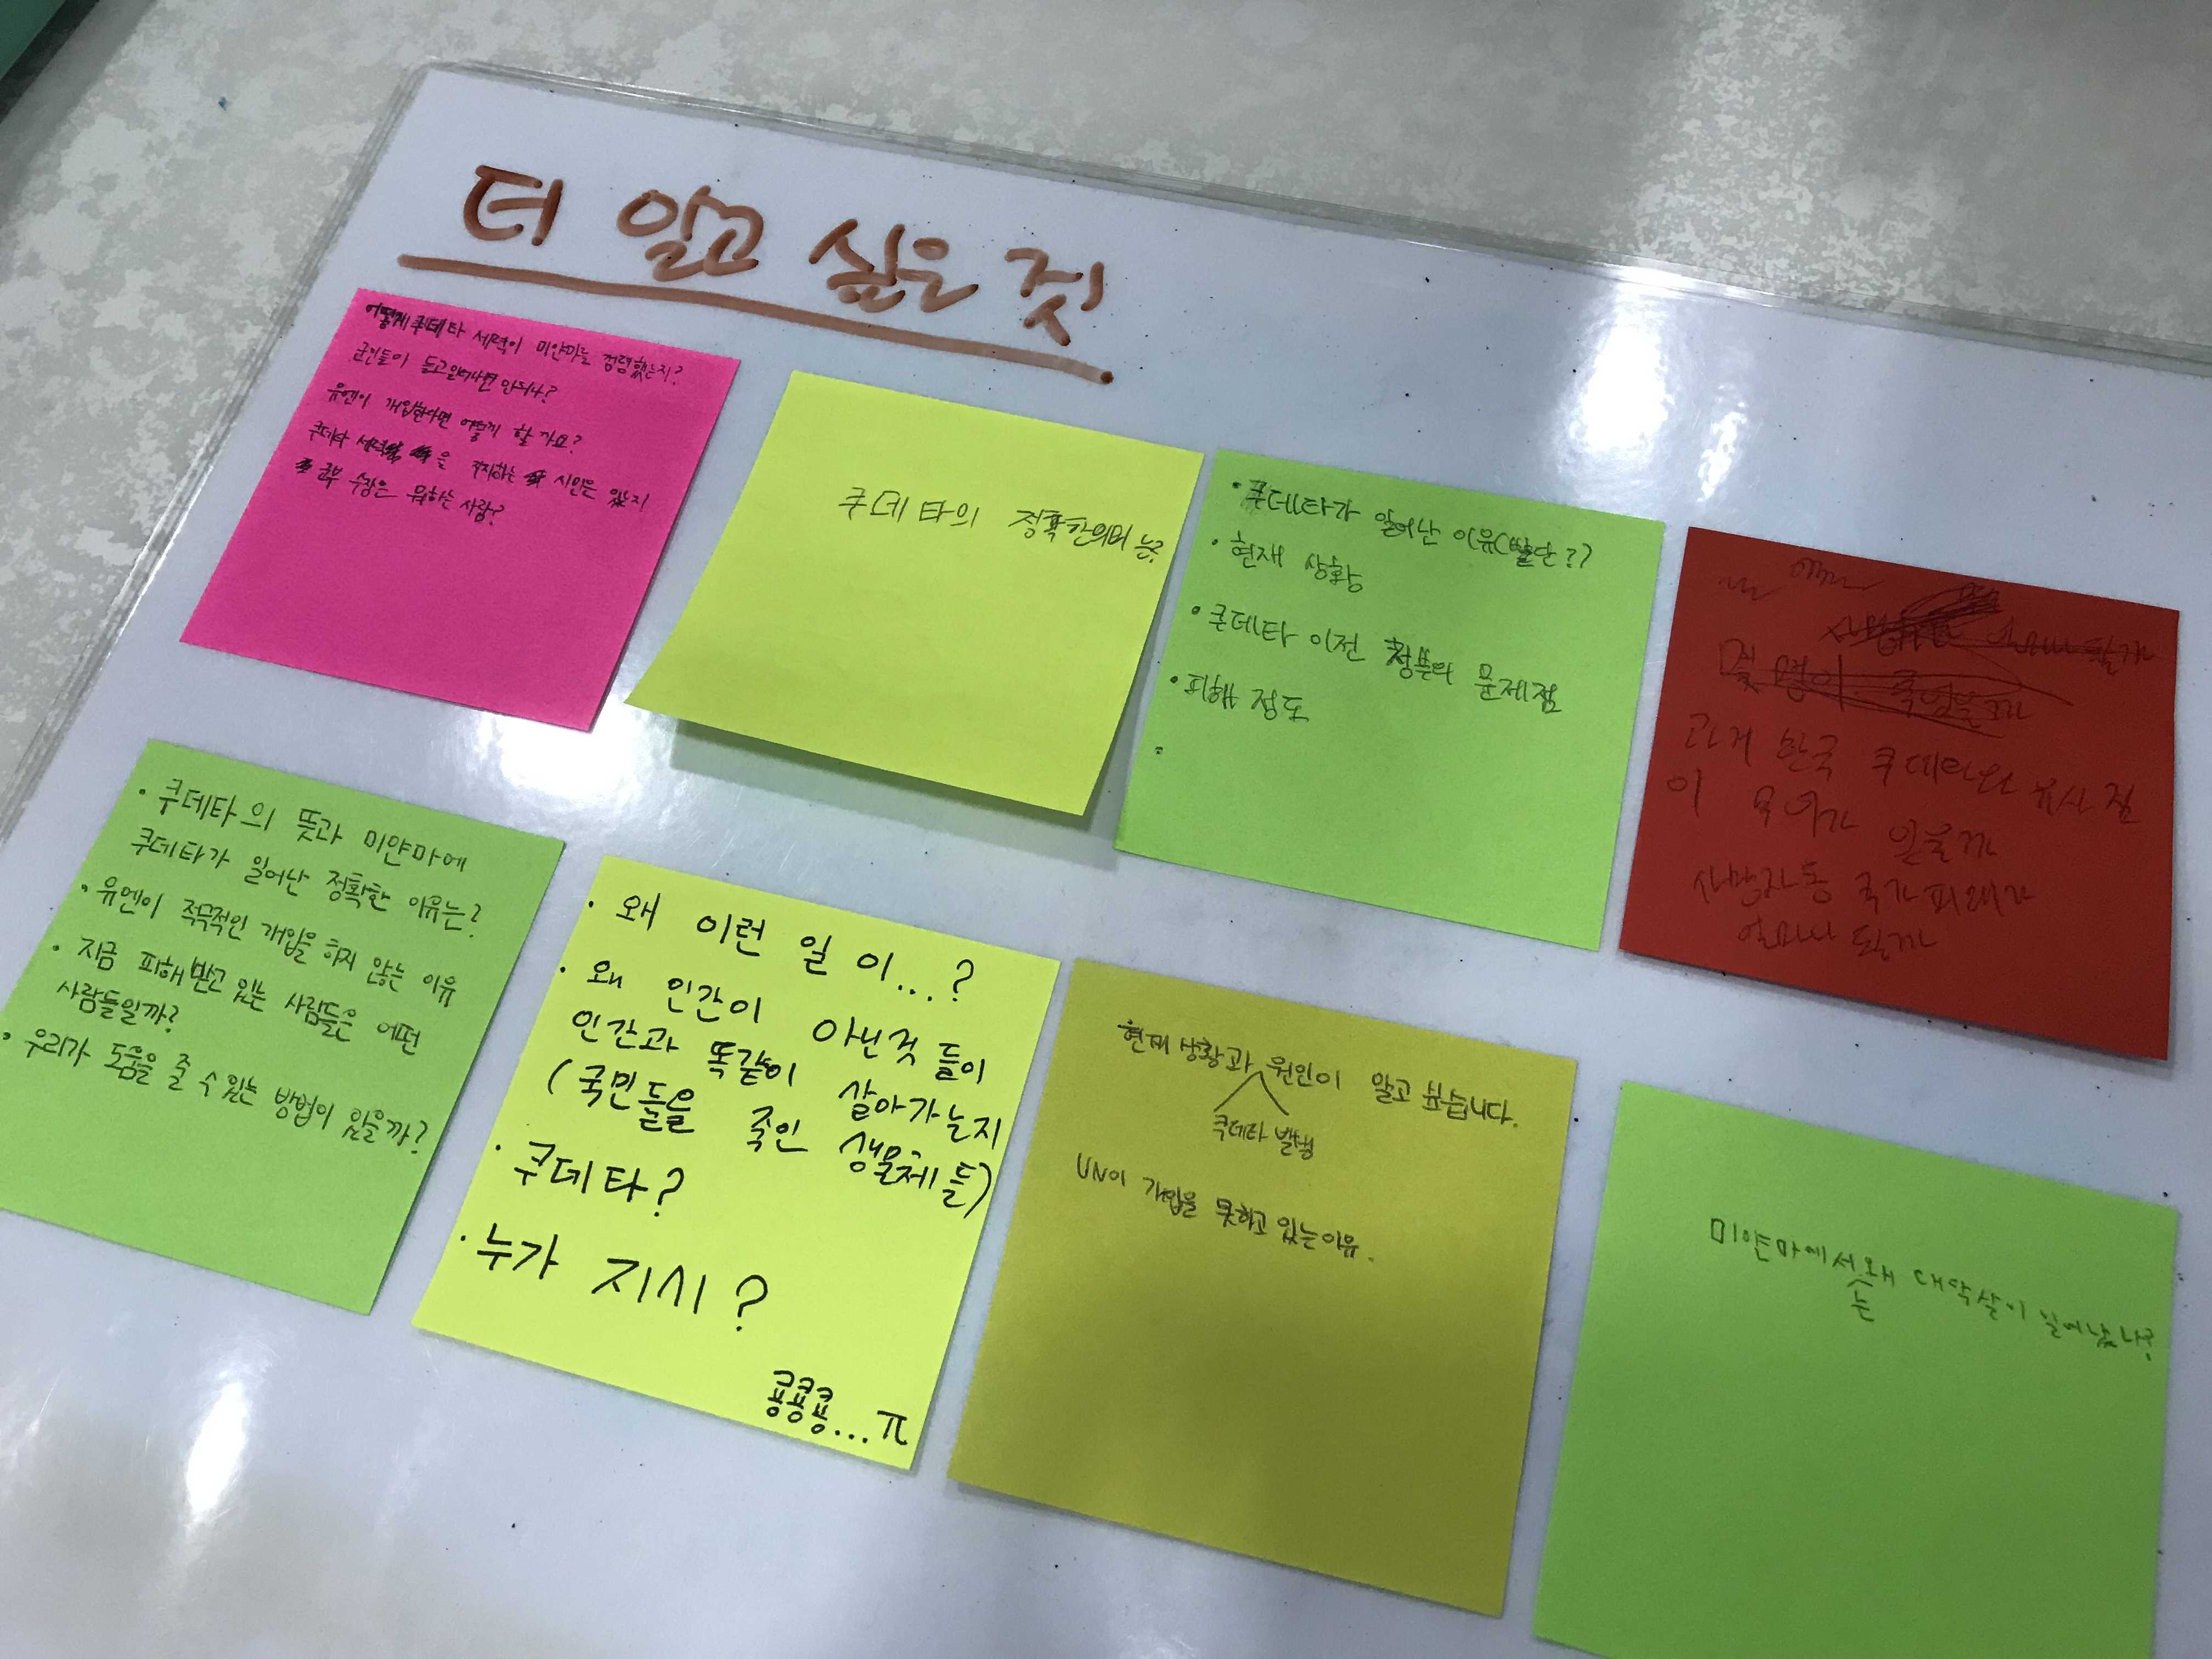 더 알고 싶은 것
어떻게 쿠데타 세력이 미얀마를 점령했는지?
군인들이 들고일어나면 안되나?
유엔이 개입한다면 어떻게 할까요?
쿠데타 세력을 지지하는 시민은 있는지
군부 수장은 뭐하는 사람?
쿠데타의 정확한의미는?
• 쿠데타가 일어난 이유(발단??)
• 현재 상황
• 쿠데타 이전 정부의 문제점
• 피해 정도
•
몇 명이 죽었을까
과거 한국 쿠데타와 유사점
이 뭐가 있을까
사망자 등 국가피해가
얼마나 될까
• 쿠데타의 뜻과 미얀마에
쿠데타가 일어난 정확한 이유는?
• 유엔이 적극적인 개입을 하지 않는 이유
• 지금 피해받고 있는 사람들은 어떤
사람들일까?
• 우리가 도움을 줄 수 있는 방법이 있을까?
• 왜 이런 일이...?
• 왜 인간이 아닌것 들이
인간과 똑같이 살아가는지
(국민들을 죽인 생물체들)
• 쿠데타?
• 누가 지시?
쿙쿙쿙...ㅠ
현재 상황과 원인이 알고 싶습니다.
쿠데타 발생
UN이 개입을 못하고 있는이유.
미얀마에서는 왜 대학살이 일어났나?